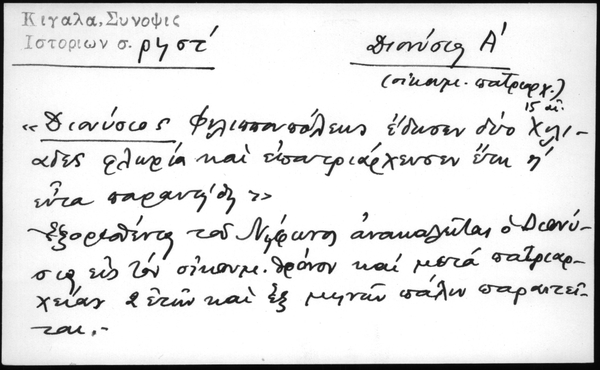 Κιγαλα, Συνοψις
Ιστοριων σ. ρηστ´
Διονύσιος Α´
(οἰκουμ. πατριαρχ.)
15 αἰ.
«Διονύσιος Φιλιππουπόλεως ἔδωσεν δύο χιλι-
άδες φλωρία καὶ ἐπατριάρχευσεν ἔτη η´
εἶτα παρῃτήθη»
Ἐξορισθέντος τοῦ Νήφωνος ἀνακαλεῖται ὁ Διονύ-
σιος εἰς τόν οἰκουμ. θρόνον καί μετά πατριαρ-
χείαν 2 ἐτῶν καὶ ἕξ μηνῶν πάλιν παραιτεῖ-
ται.-